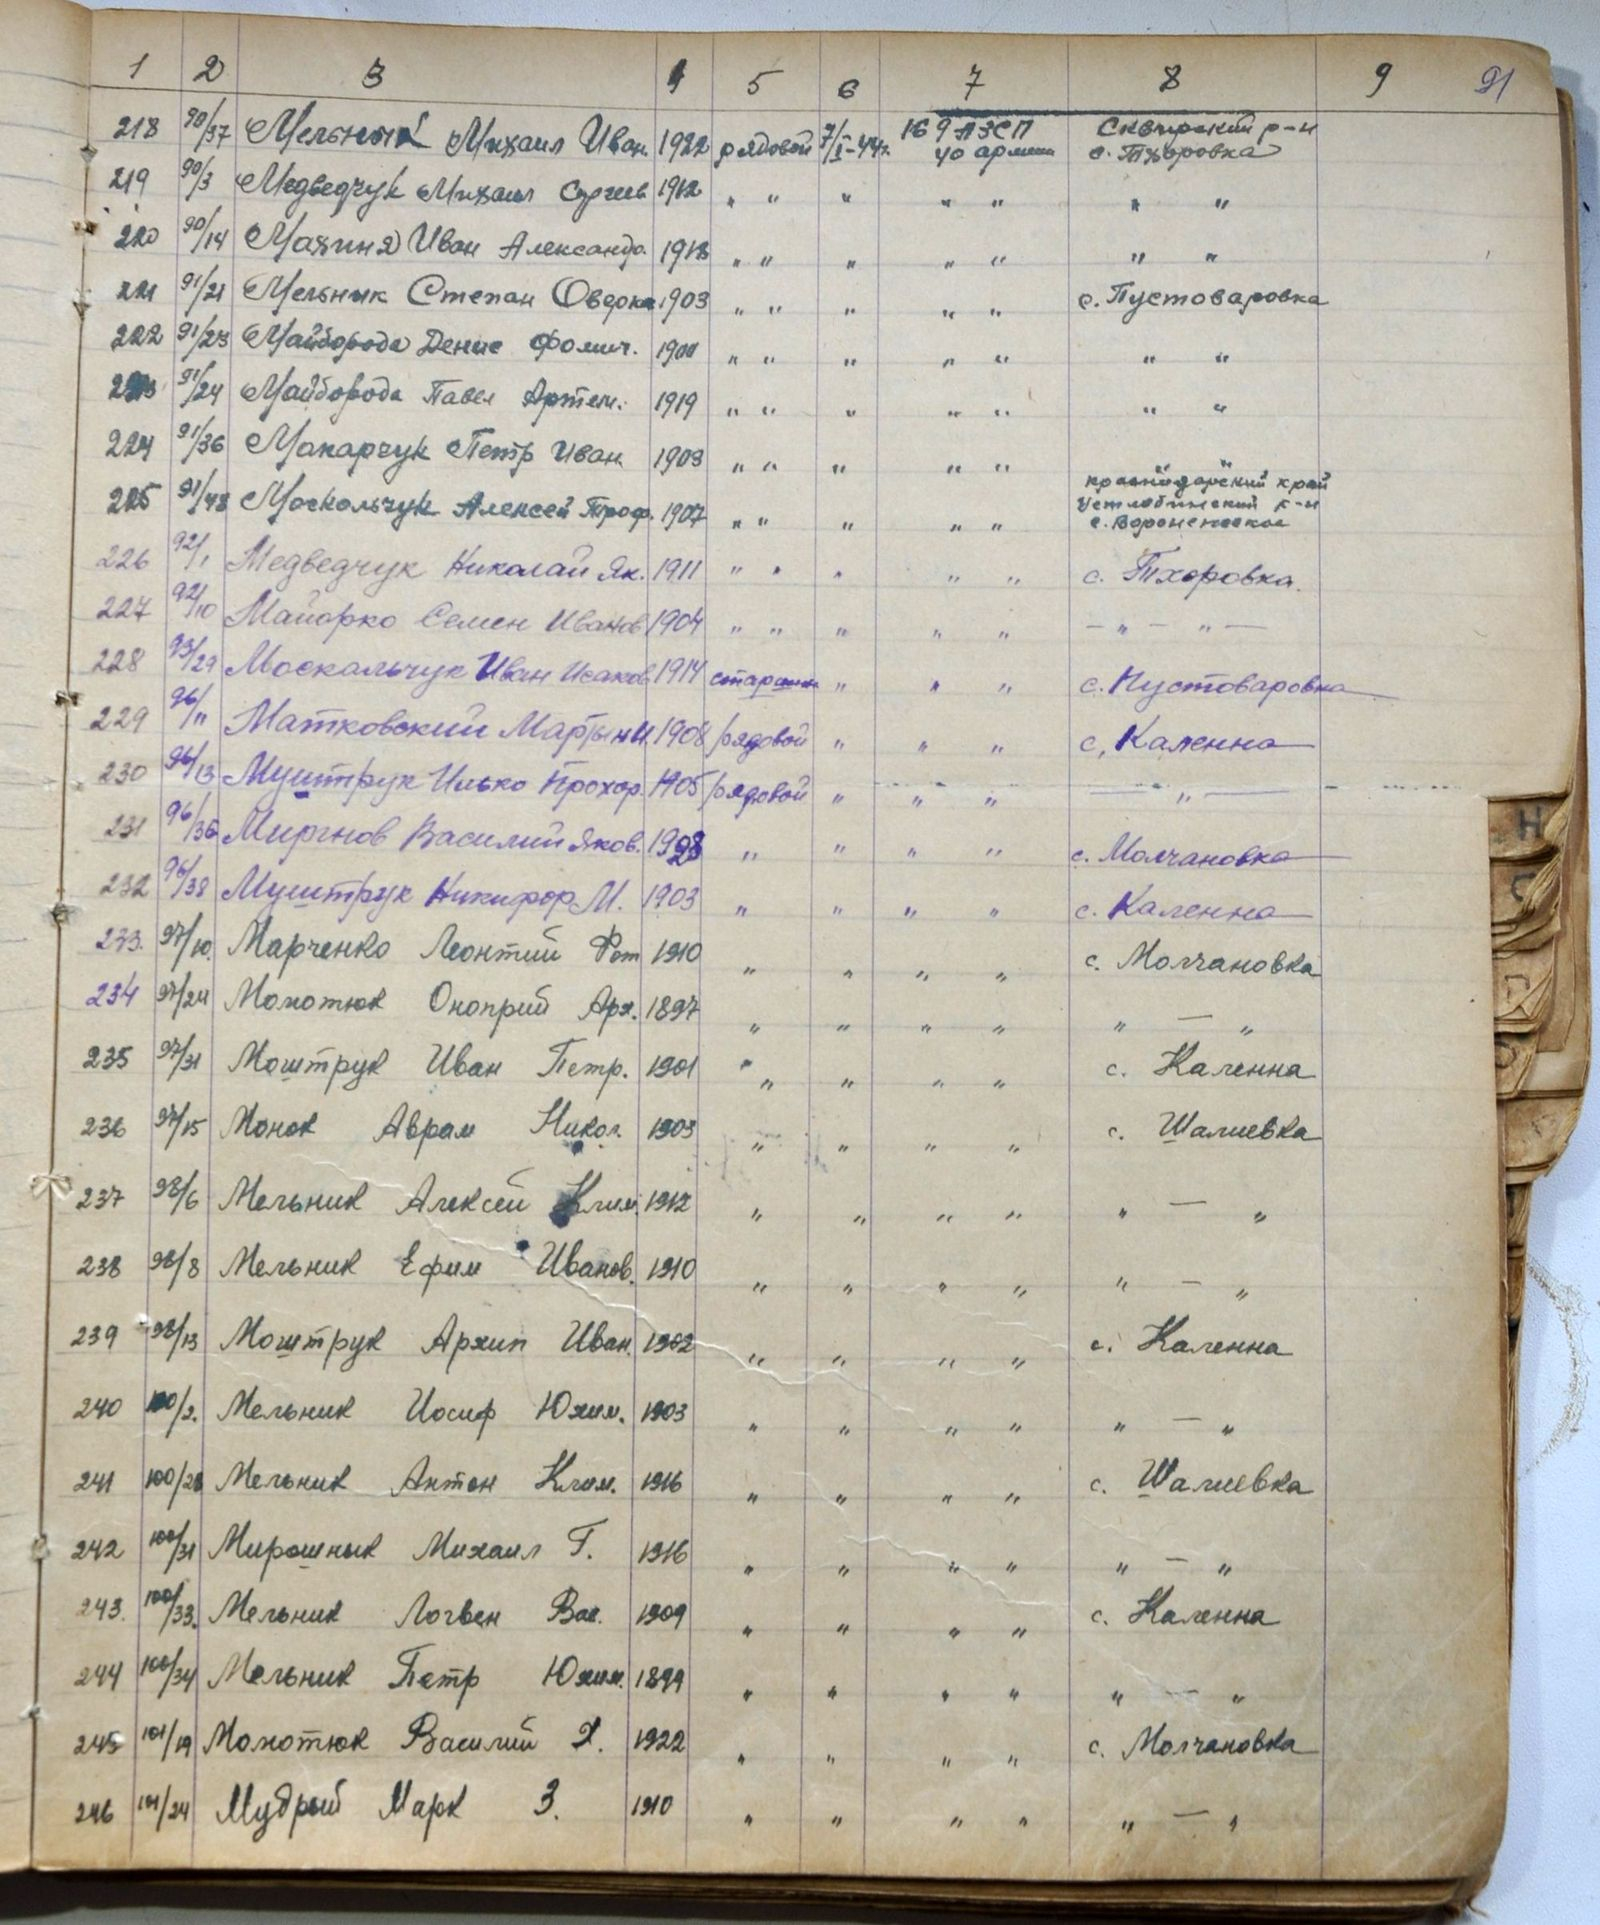 1 2 3 4 5 6 7 8 9 91
218 90/37 Мельнык Михаил Иван. 1922 рядовой 7/I-44г. 169 АЗСП 40 армии Сквирский р-н с. Тхоровка
219 90/3 Медведчук Михаил Сергеев 1912 " " " " " " "
220 90/14 Мазиня Иван Александр. 1918 " " " " " " "
221 91/21 Мельник Степан Оверка 1903 " " " " " с. Пустоваровка
222 91/23 Майборода Денис Фомич. 1900 " " " " " " "
223 91/24 Майборода Павел Артем. 1919 " " " " " " "
224 91/36 Макарчук Петр Иван 1903 " " " " " " "
225 91/48 Москальчук Алексей Троф. 1907 " " " " " Краснодарский край Устлабинский р-н с. Воронежское
226 92/1 Медведчук Николай Як. 1911 " " " " " с. Тхоровка
227 92/10 Майорко Семен Иванов 1904 " " " " " – " – " –
228 93/29 Москальчук Иван Исаков 1914 старшин " " " с. Пустоваровка
229 96/11 Матковский Мартын И. 1908 рядовой " " " с. Каленна
230 96/13 Муштрук Илько Прохор. 1905 рядовой " " " — " —
231 96/36 Миронов Василий Яков. 1928 " " " " с. Молчановка
232 96/38 Муштрук Никифор М. 1903 " " " " с. Каленна
233. 97/10. Марченко Леонтий Фот 1910 " " " " с. Молчановка
234 97/24 Мохотюк Оноприй Арх. 1897 " " " " " — "
235 97/31 Моштрук Иван Петр. 1901 " " " " с. Каленна
236 97/15 Монок Аврам Никол. 1903 " " " " с. Шалиевка
237 98/6 Мельник Алексей Клим. 1912 " " " " " — "
238 98/8 Мельник Ефим Иванов. 1910 " " " " " — "
239 98/13 Моштрук Архип Иван. 1902 " " " " с. Каленна
240 100/2. Мельник Иосиф Юхим. 1903 " " " " " — "
241 100/28 Мельник Антон Клим. 1916 " " " " с. Шалиевка
242 100/31 Мирошнык Михаил Г. 1916 " " " " " — "
243. 100/33. Мельник Логвен Вас. 1909 " " " " с. Каленна
244 100/34 Мельник Петр Юхим. 1899 " " " " " — "
245 101/19 Мохотюк Василий Х. 1922 " " " " с. Молчановка
246 101/24 Мудрый Марк З. 1910 " " " " " — "
Н
О
П